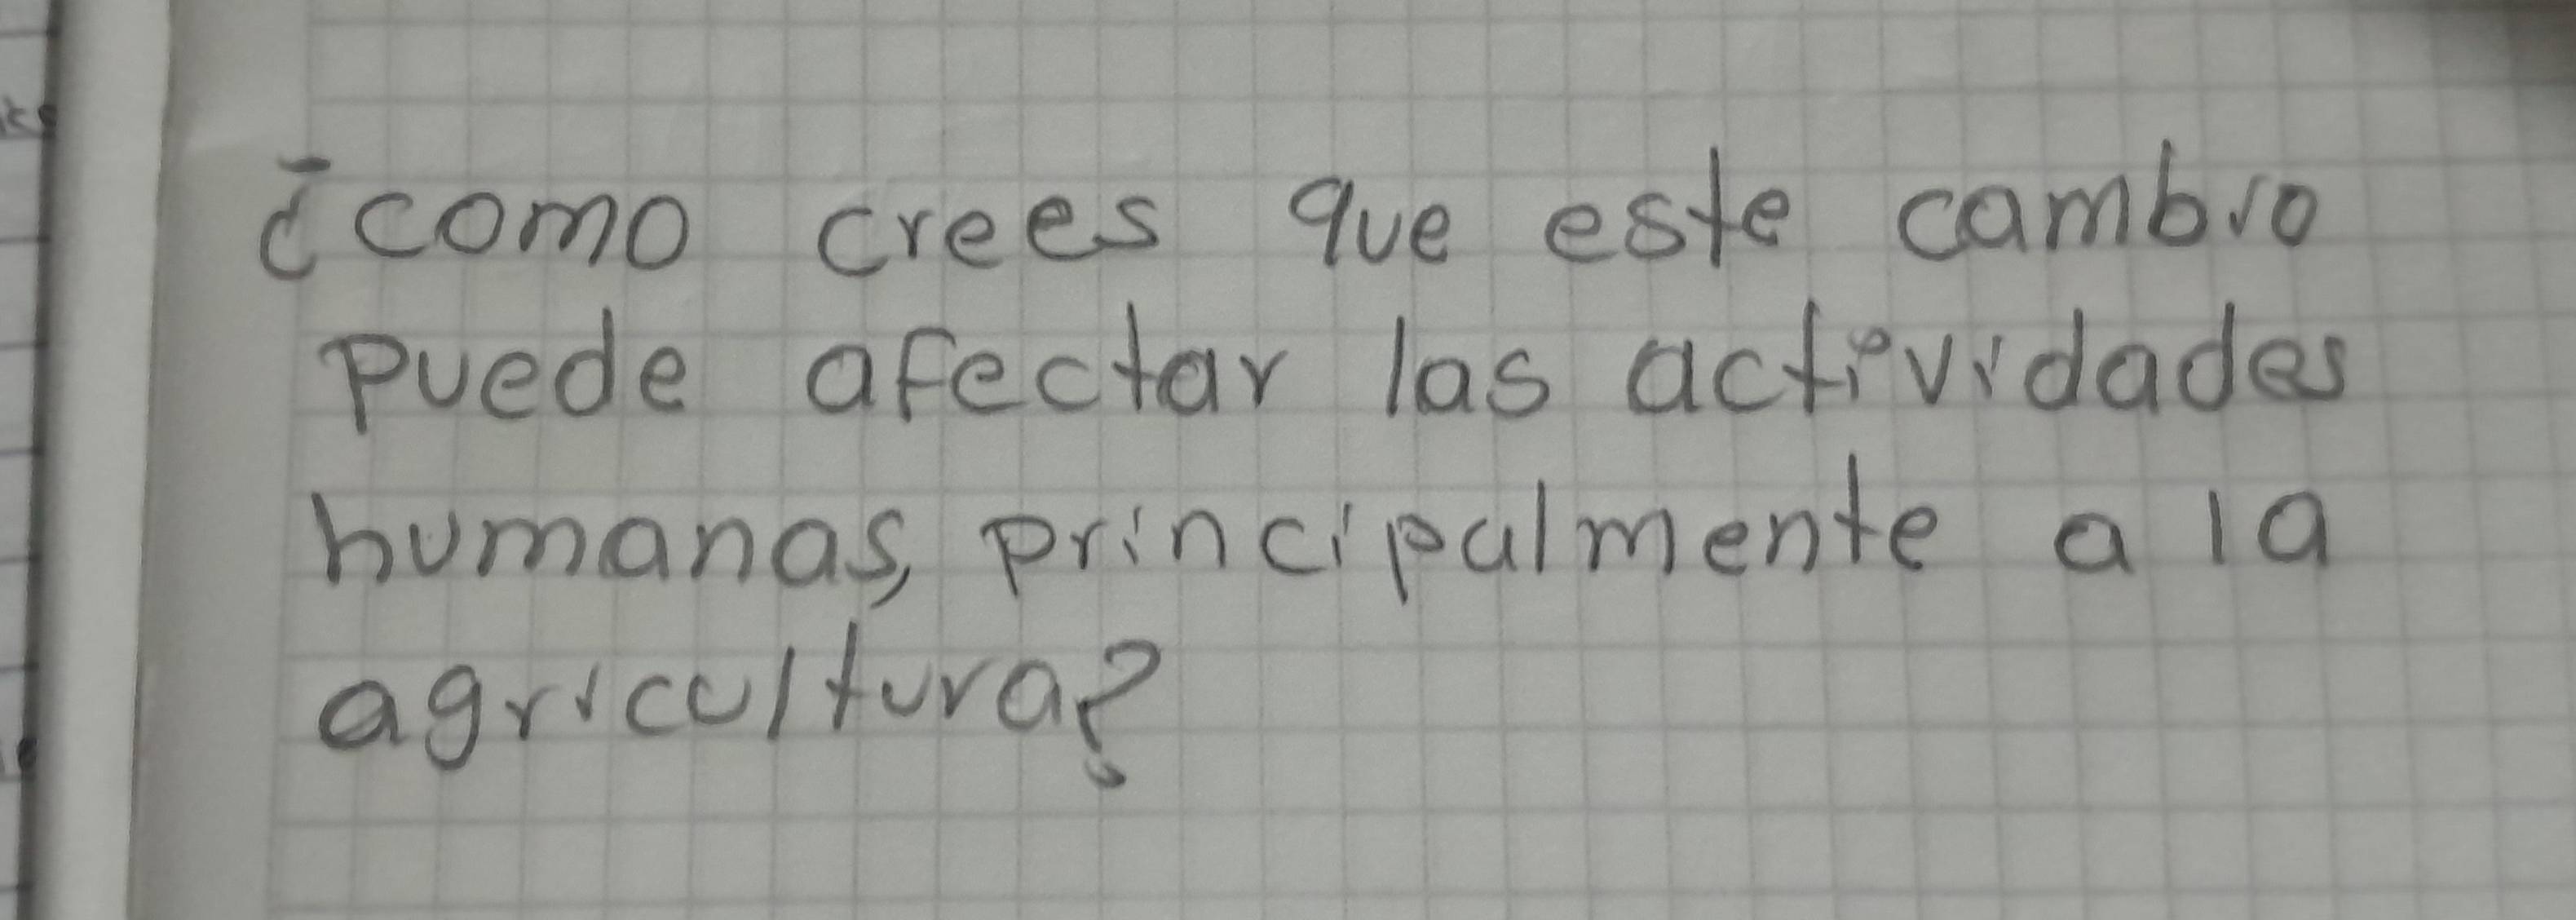 ¿como crees que este cambio
puede afectar las actividades
humanas, principalmente a la
agricultura?